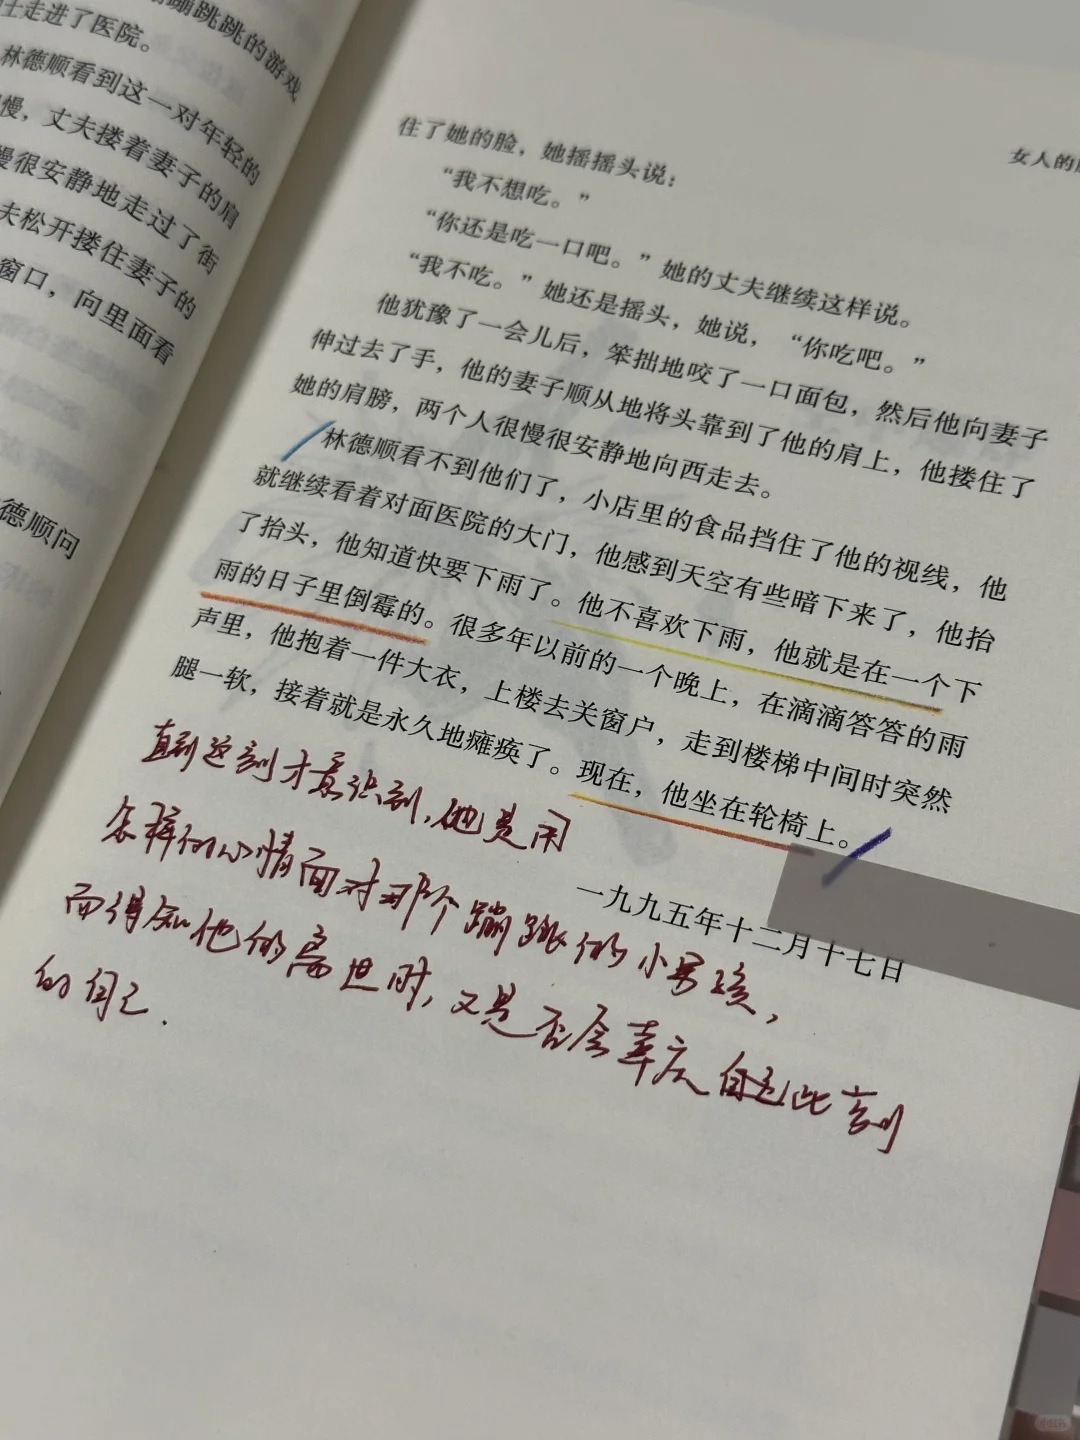 蹦跳跳的游戏
士走进了医院。
林德顺看到这一对年轻的
慢，丈夫搂着妻子的肩
慢很安静地走过了街
夫松开搂住妻子的
窗口，向里面看
德顺问
女人的
住了她的脸，她摇摇头说：
“我不想吃。”
“你还是吃一口吧。”她的丈夫继续这样说。
“我不吃。”她还是摇头，她说，“你吃吧。”
他犹豫了一会儿后，笨拙地咬了一口面包，然后他向妻子
伸过去了手，他的妻子顺从地将头靠到了他的肩上，他搂住了
她的肩膀，两个人很慢很安静地向西走去。
林德顺看不到他们了，小店里的食品挡住了他的视线，他
就继续看着对面医院的大门，他感到天空有些暗下来了，他抬
了抬头，他知道快要下雨了。他不喜欢下雨，他就是在一个下
雨的日子里倒霉的。很多年以前的一个晚上，在滴滴答答的雨
声里，他抱着一件大衣，上楼去关窗户，走到楼梯中间时突然
腿一软，接着就是永久地瘫痪了。现在，他坐在轮椅上。
一九九五年十二月十七日
直到这刻才意识到，他是用
怎样的心情面对那个蹦跳的小男孩，
而得知他的离世时，又是否会幸庆自己此刻
的自己.